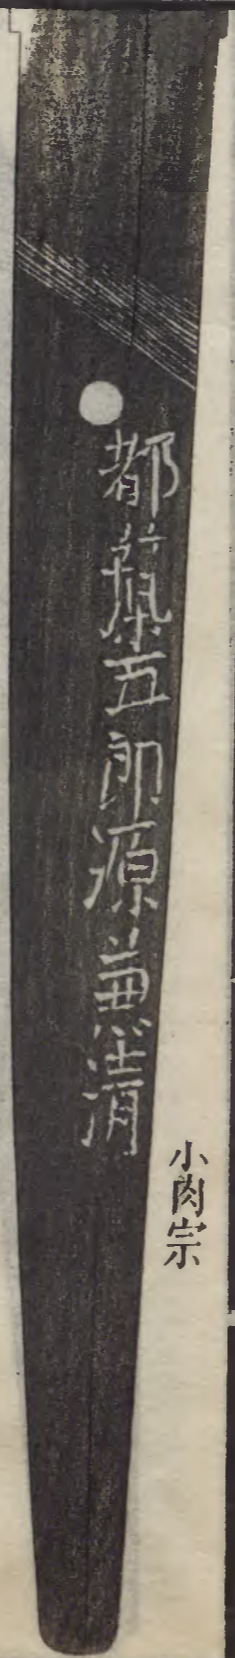 都築五郎源兼清
小肉宗